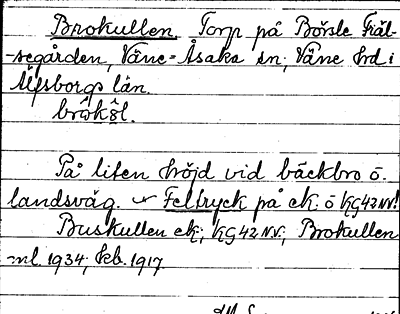 Brokullen. Torp på Börsle Fräl-
-segården, Väne-Åsaka sn, Väne hd i
Älfsborgs län.
brω̂kŏ̤l.
På liten höjd vid bäckbro ö.
landsväg. Feltryck på ek. o KG42NV!
Buskullen ek.; KG42NV., Brokullen
ml. 1934, kb. 1917